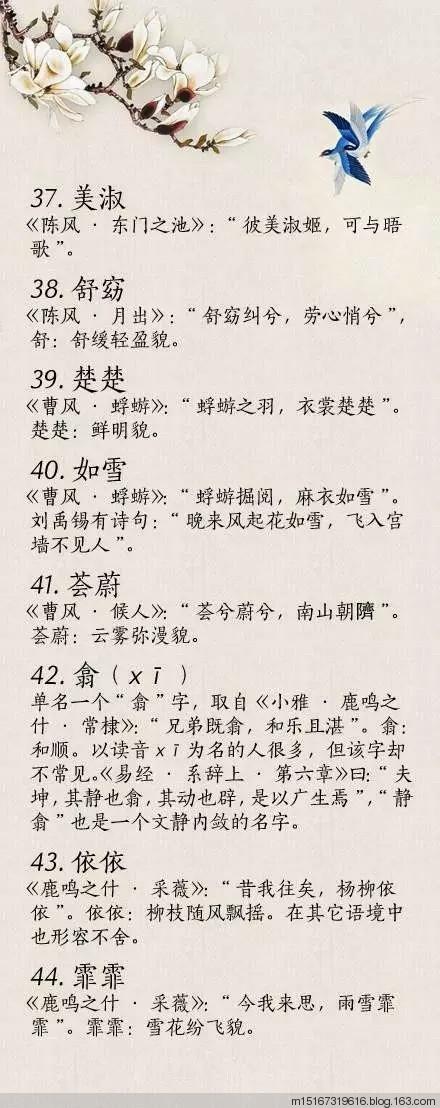 37. 美淑
《陈风 · 东门之池》：“彼美淑姬，可与晤
歌”。
38. 舒窈
《陈风 · 月出》：“舒窈纠兮，劳心悄兮”，
舒：舒缓轻盈貌。
39. 楚楚
《曹风 · 蜉蝣》：“蜉蝣之羽，衣裳楚楚”。
楚楚：鲜明貌。
40. 如雪
《曹风 · 蜉蝣》：“蜉蝣掘阅，麻衣如雪”。
刘禹锡有诗句：“晚来风起花如雪，飞入宫
墙不见人”。
41. 荟蔚
《曹风 · 候人》：“荟兮蔚兮，南山朝隮”。
荟蔚：云雾弥漫貌。
42. 翕（xī）
单名一个“翕”字，取自《小雅 · 鹿鸣之
什 · 常棣》：“兄弟既翕，和乐且湛”。翕：
和顺。以读音xī为名的人很多，但该字却
不常见。《易经 · 系辞上 · 第六章》曰：“夫
坤，其静也翕，其动也辟，是以广生焉”，“静
翕”也是一个文静内敛的名字。
43. 依依
《鹿鸣之什 · 采薇》：“昔我往矣，杨柳依
依”。依依：柳枝随风飘摇。在其它语境中
也形容不舍。
44. 霏霏
《鹿鸣之什 · 采薇》：“今我来思，雨雪霏
霏”。霏霏：雪花纷飞貌。
m15167319616.blog.163.com